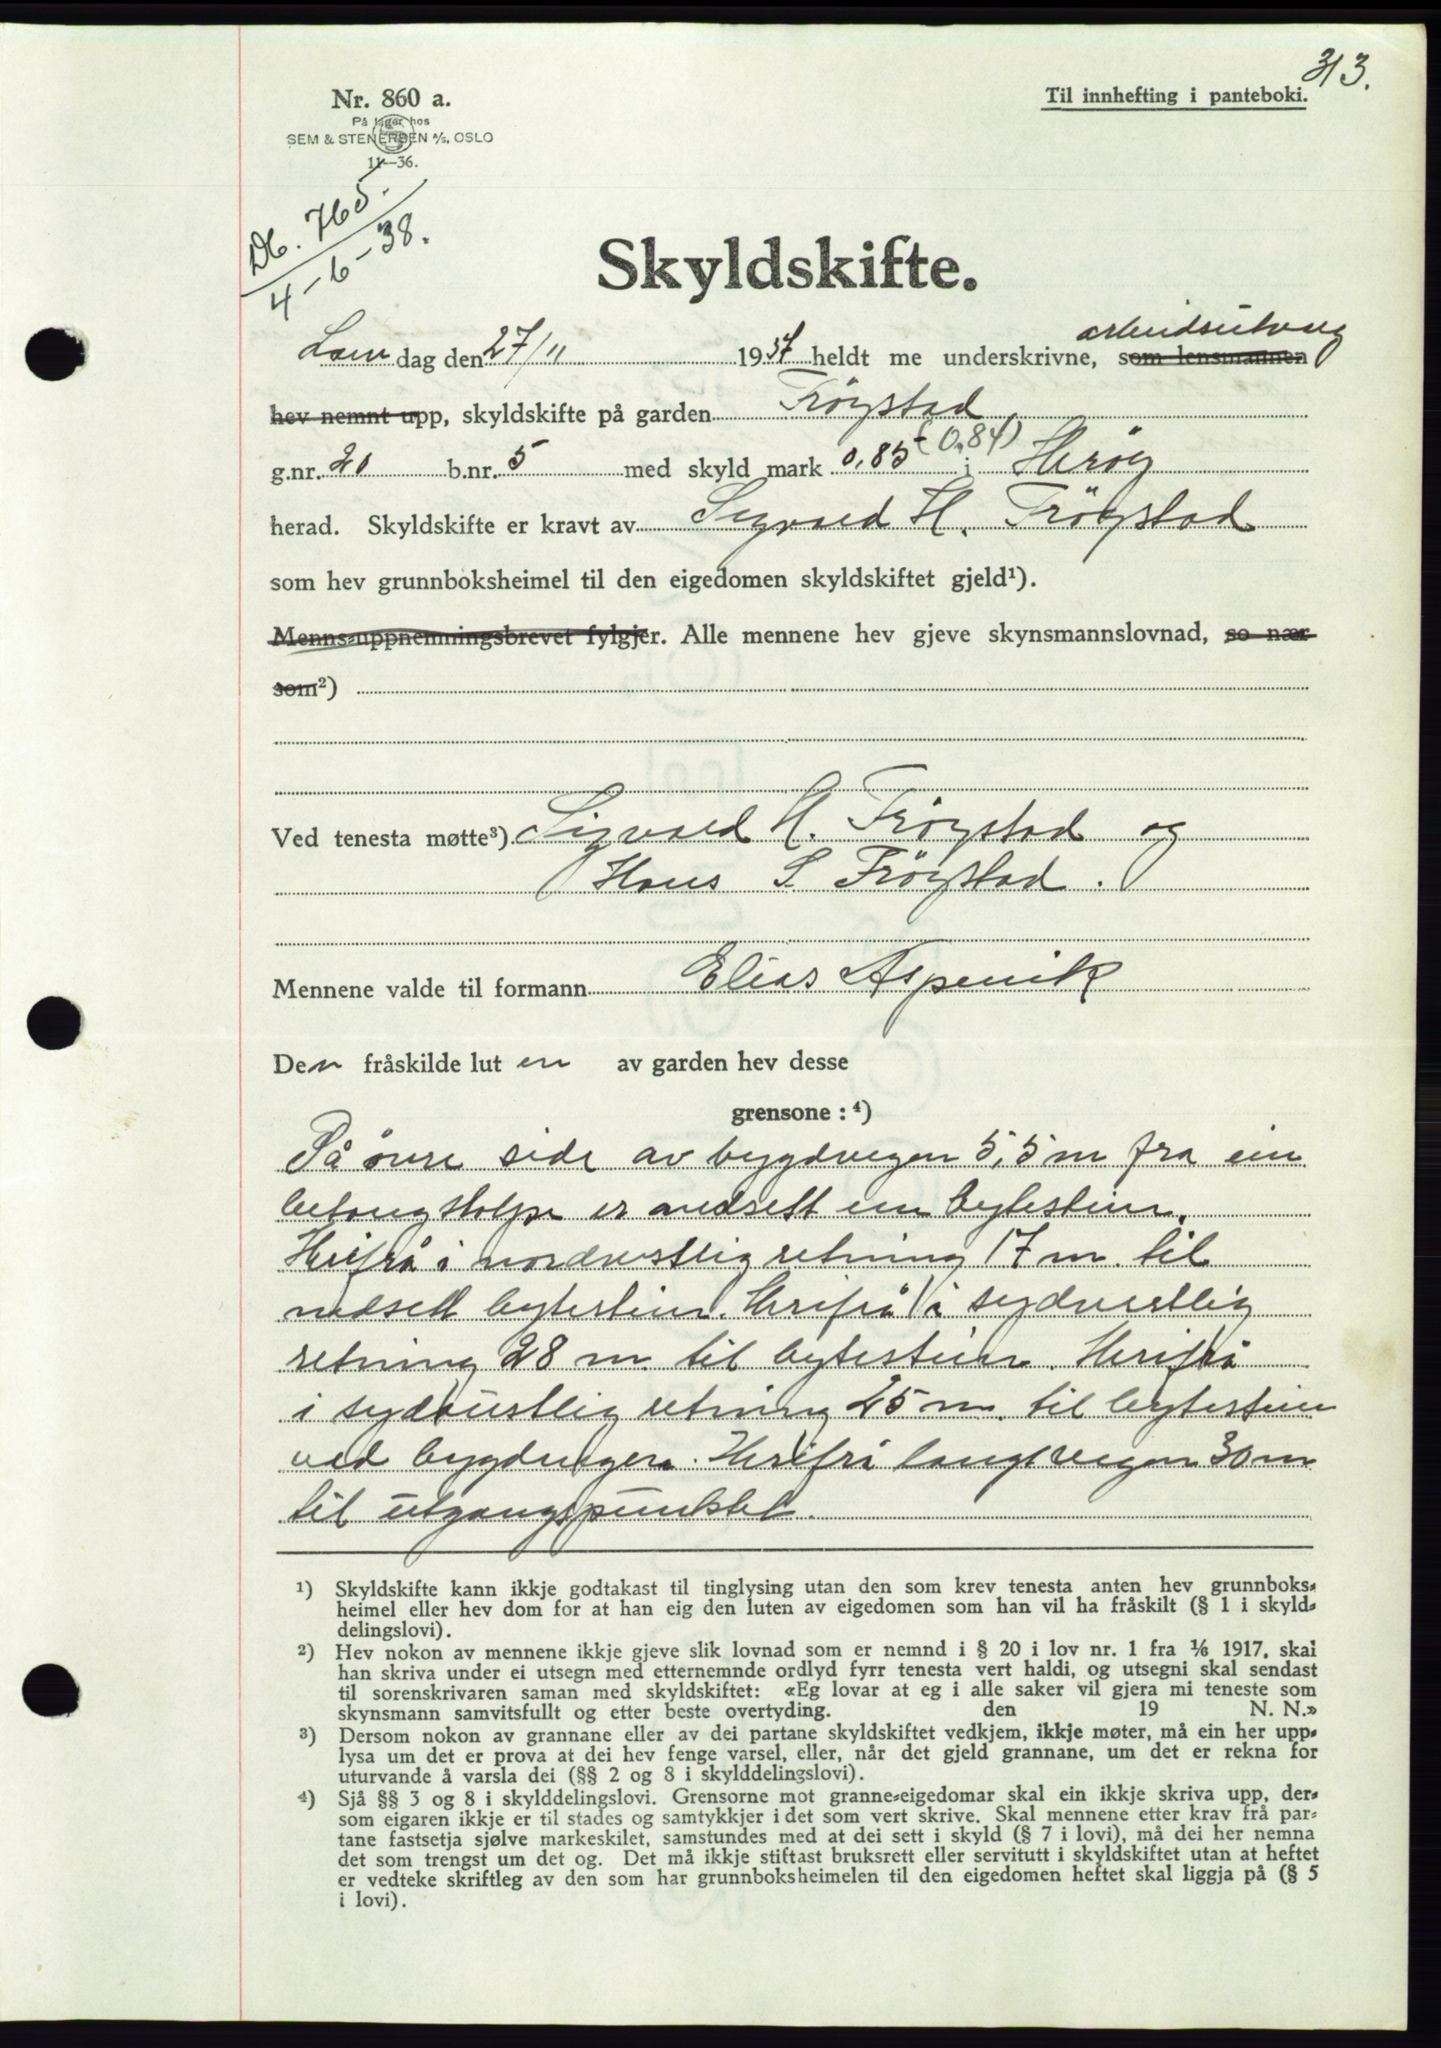 313.
Nr. 860 a.
Til innhefting i panteboki.
På lager hos
SEM & STENERSEN A/S, OSLO
11—36.
Db. 765.
4-6-38.
Skyldskifte.
arbeidsutvalg
Laur dag den 27/11 1937 heldt me underskrivne, som lensmannen
hev nemnt upp, skyldskifte på garden Frøystad
(0,84)
g.nr. 20 b.nr. 5 med skyld mark 0,85 i Herøy
herad. Skyldskifte er kravt av Sigvald H. Frøystad
som hev grunnboksheimel til den eigedomen skyldskiftet gjeld¹).
Menns-uppnemningsbrevet fylgjer. Alle mennene hev gjeve skynsmannslovnad, so nær
som²)
Ved tenesta møtte³) Sigvald H. Frøystad og
Hans S. Frøystad.
Mennene valde til formann Elias Aspevik
Den fråskilde lut en av garden hev desse
grensone: ⁴)
På øvre side av bygdvegen 5,5 m fra ein
betongstolpe er nedsett ein bytestein.
Herifrå i nordvestlig retning 17 m. til
nedsett bytestein. Herifrå i sydvestlig
retning 28 m til bytestein. Herifrå
i sydaustlig retning 25 m. til bytestein
ved bygdvegen. Herifrå langs vegen 30 m
til utgangspunktet.
¹) Skyldskifte kann ikkje godtakast til tinglysing utan den som krev tenesta anten hev grunnboks-
heimel eller hev dom for at han eig den luten av eigedomen som han vil ha fråskilt (§ 1 i skyld-
delingslovi).
²) Hev nokon av mennene ikkje gjeve slik lovnad som er nemnd i § 20 i lov nr. 1 fra 1/6 1917, skal
han skriva under ei utsegn med etternemnde ordlyd fyrr tenesta vert haldi, og utsegni skal sendast
til sorenskrivaren saman med skyldskiftet: «Eg lovar at eg i alle saker vil gjera mi teneste som
skynsmann samvitsfullt og etter beste overtyding. den 19 N. N.»
³) Dersom nokon av grannane eller av dei partane skyldskiftet vedkjem, ikkje møter, må ein her upp-
lysa um det er prova at dei hev fenge varsel, eller, når det gjeld grannane, um det er rekna for
uturvande å varsla dei (§§ 2 og 8 i skylddelingslovi).
⁴) Sjå §§ 3 og 8 i skylddelingslovi. Grensorne mot granne-eigedomar skal ein ikkje skriva upp, der-
som eigaren ikkje er til stades og samtykkjer i det som vert skrive. Skal mennene etter krav frå par-
tane fastsetja sjølve markeskilet, samstundes med at dei sett i skyld (§ 7 i lovi), må dei her nemna
det som trengst um det og. Det må ikkje stiftast bruksrett eller servitutt i skyldskiftet utan at heftet
er vedteke skriftleg av den som har grunnboksheimelen til den eigedomen heftet skal liggja på (§ 5
i lovi).